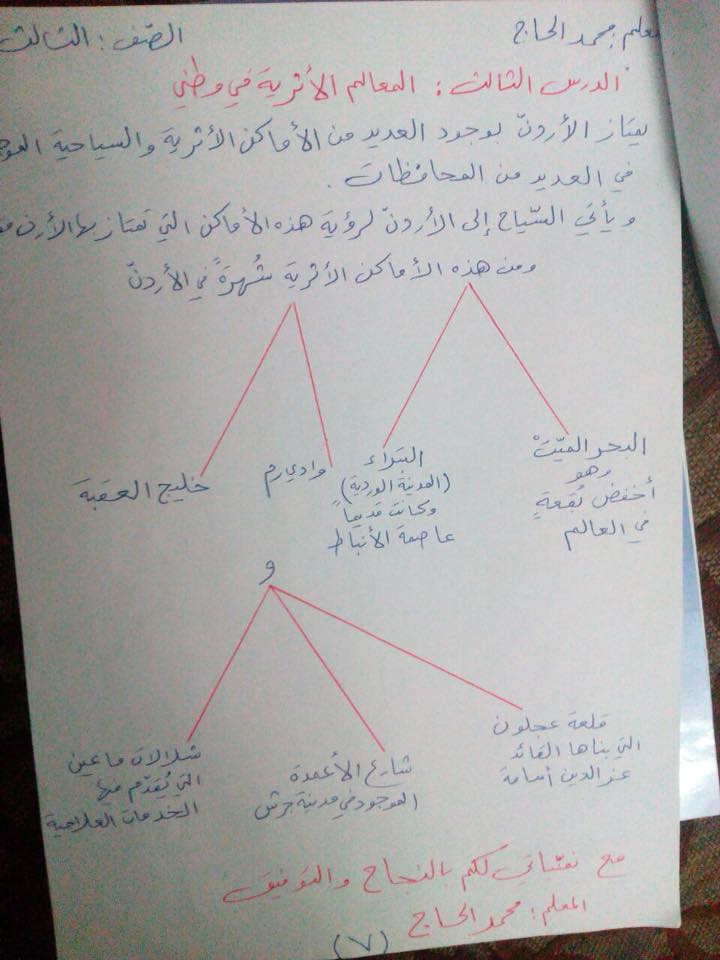 معلم: محمد الحاج
الصّف: الثالث
الدرس الثالث: المعالم الأثرية في وطني
يمتاز الأردنّ بوجود العديد من الأماكن الأثرية والسياحية
في العديد من المحافظات.
ويأتي السّياح إلى الأردنّ لرؤية هذه الأماكن التي تمتاز بها الأردن
ومن هذه الأماكن الأثرية شُهرةً في الأردنّ
البحر الميّتْ
وهو
أخفض بُقعةٍ
في العالم
البتراء
(المدينة الوردية)
وكانت قديماً
عاصمة الأنباط
وادي رم
خليج العقبة
و
قلعة عجلون
التي بناها القائد
عز الدين أسامة
شارع الأعمدة
الموجود في مدينة جرش
شلالات ماعين
التي يُقدّم فيها
الخدمات العلاجية
مع تمنّياتي لكم بالنجاح والتوفيق
المعلم: محمد الحاج
(٧)